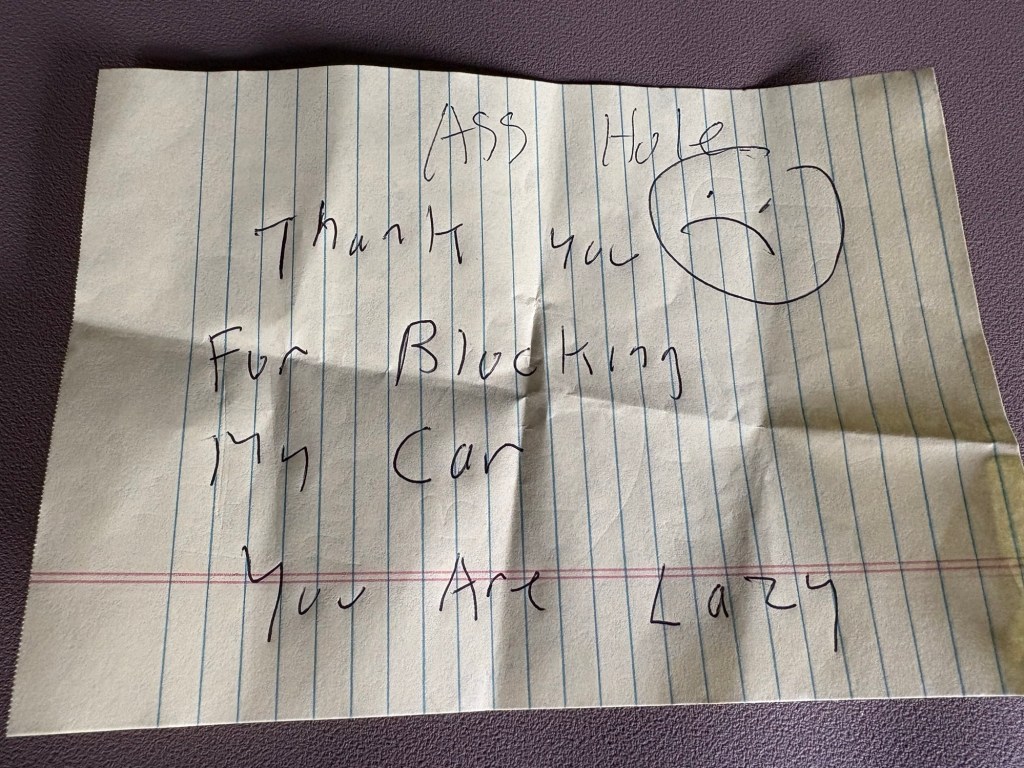 Ass Hole
Thank you
For Blocking
My Car
You Are Lazy